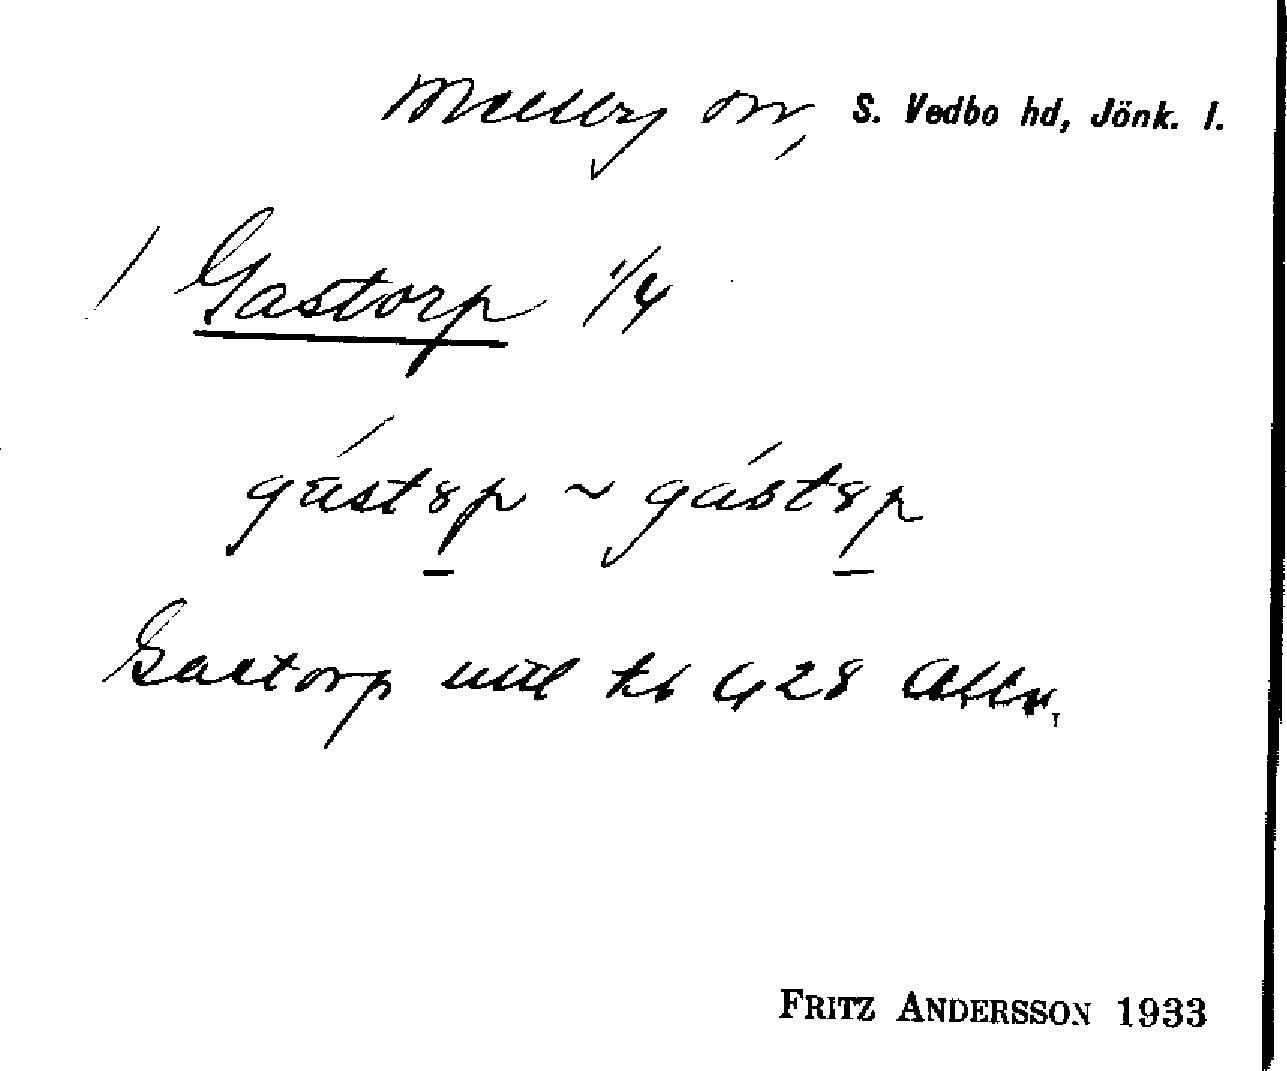 Mellby sn, S. Vedbo hd, Jönk. l.
/ Gastorp 1/4
gástȣp ~ gástȣp
Gastorp uttl kb 428 Allm.
FRITZ ANDERSSON 1933